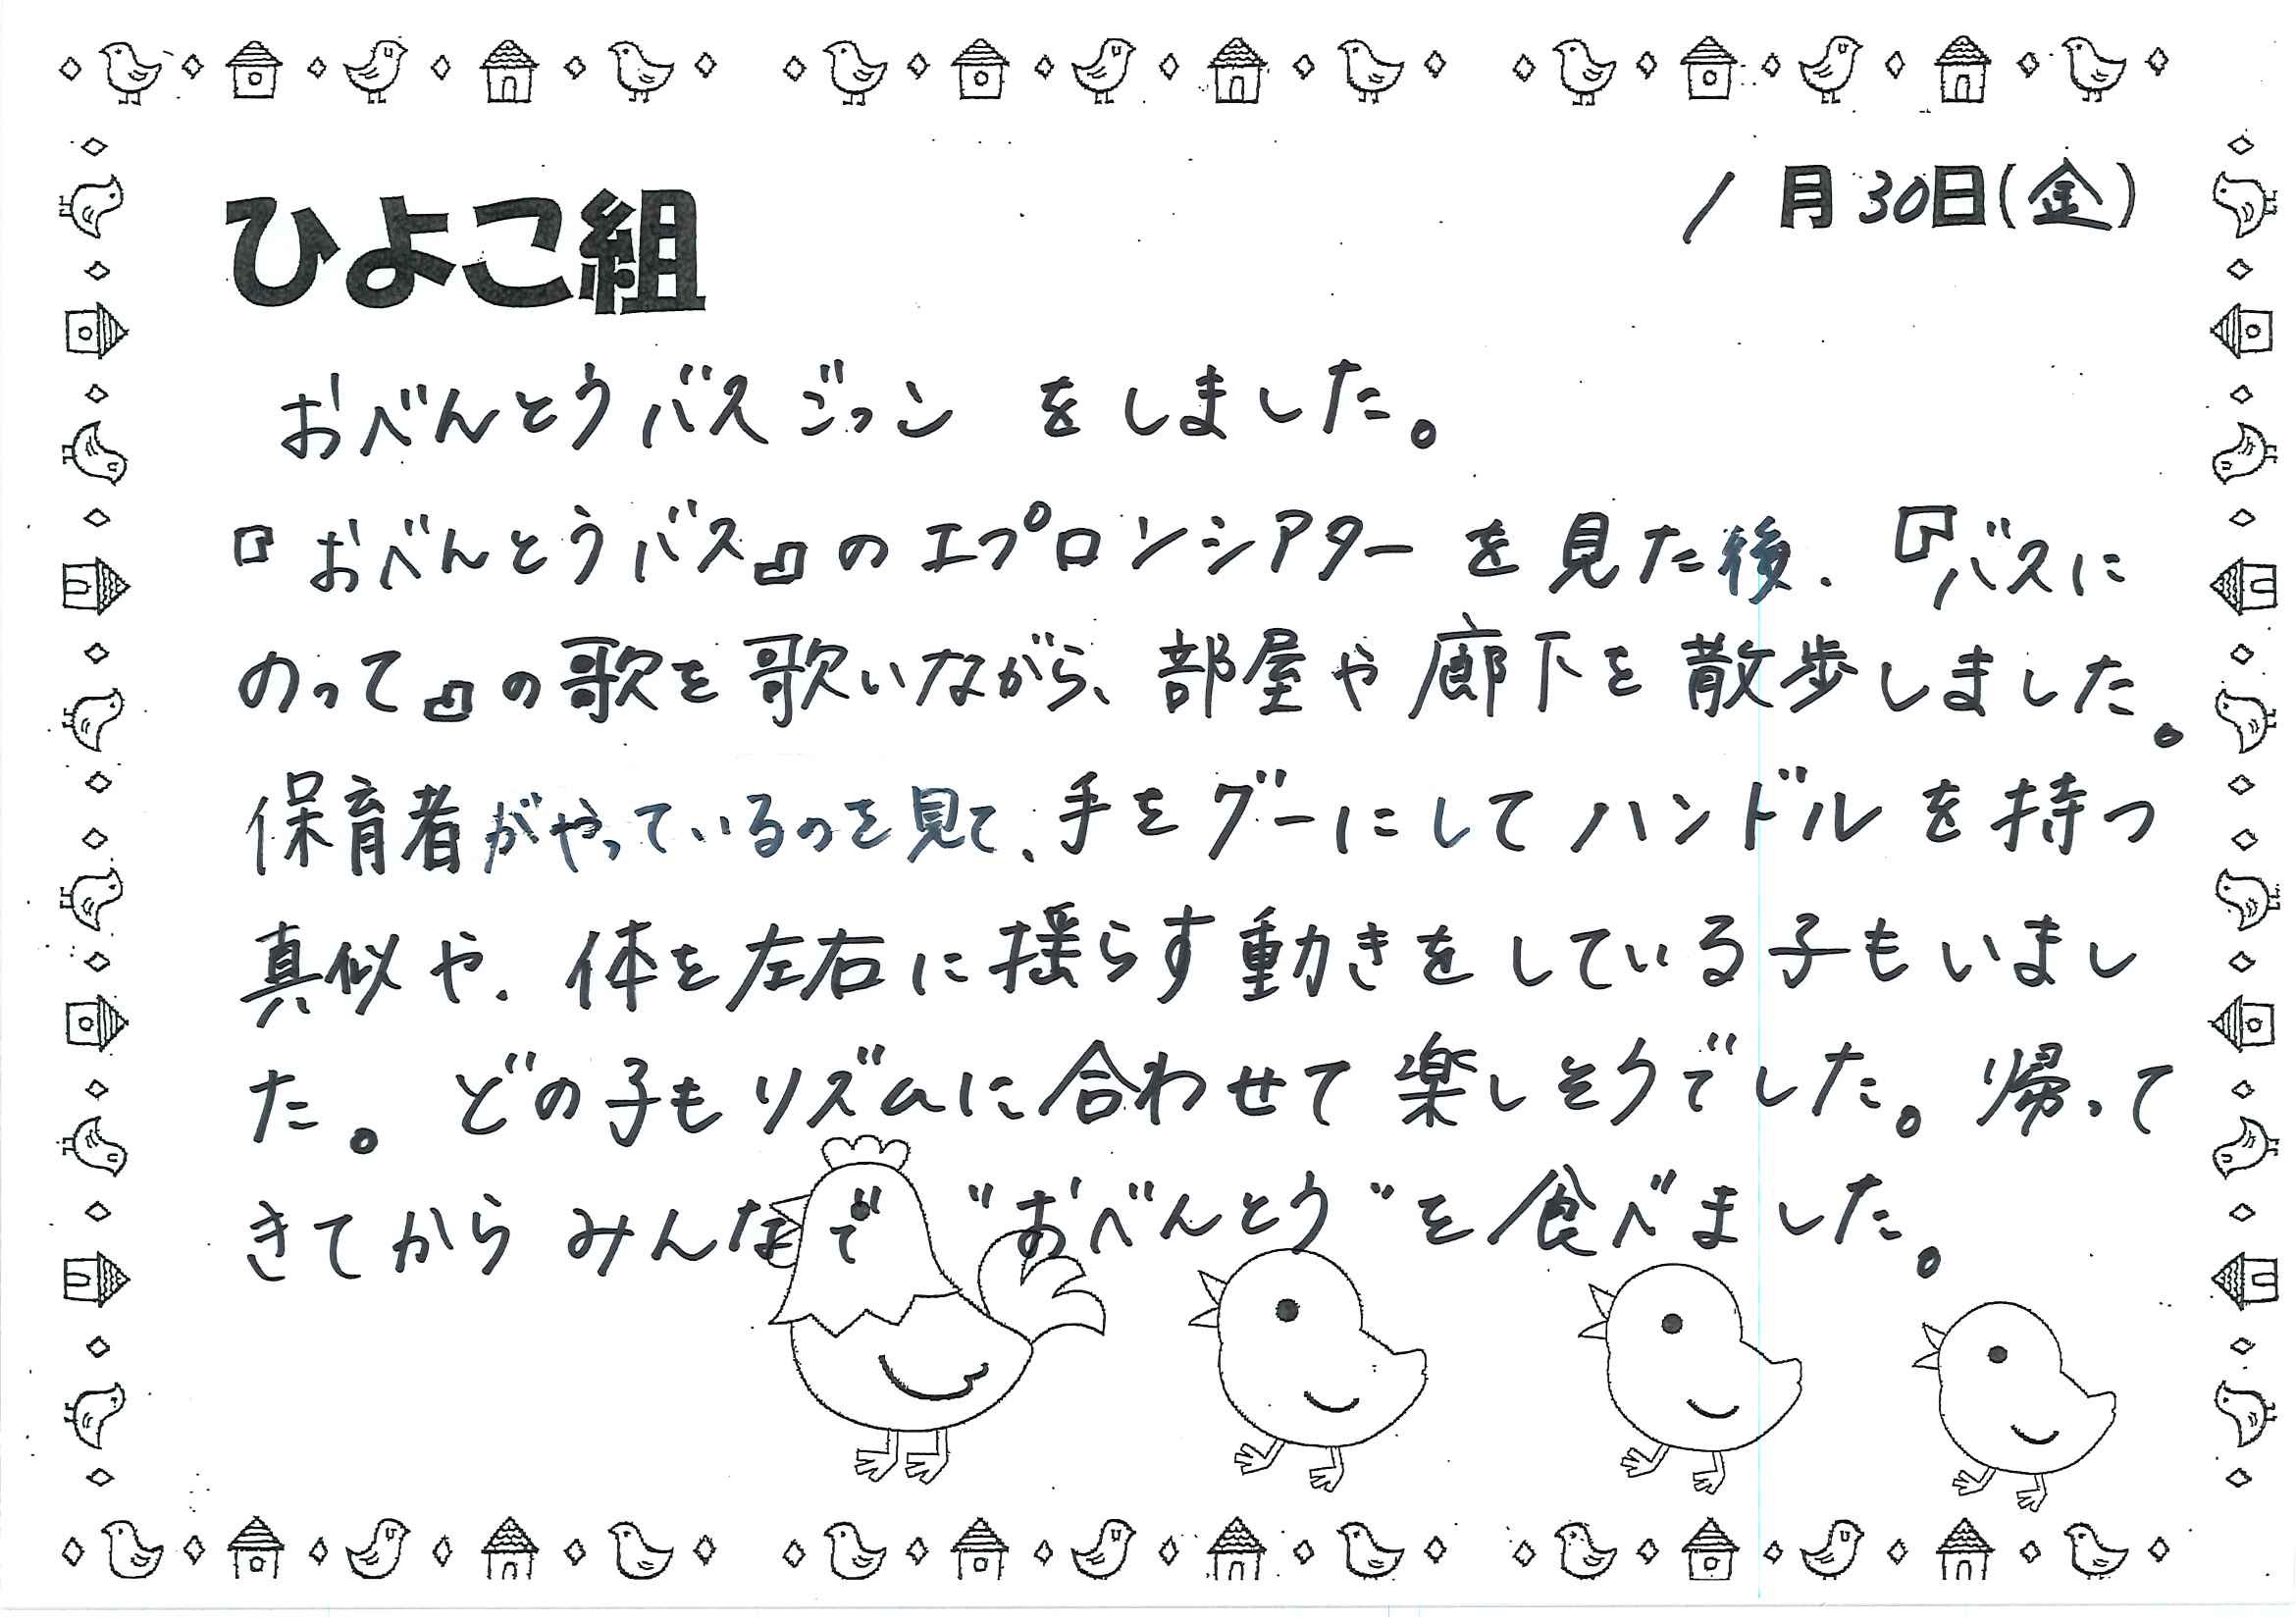 1月30日(金)
ひよこ組
おべんとうバスごっこ をしました。
『おべんとうバス』のエプロンシアターを見た後、『バスに
のって』の歌を歌いながら、部屋や廊下を散歩しました。
保育者がやっているのを見て、手をグーにしてハンドルを持つ
真似や、体を左右に揺らす動きをしている子もいまし
た。どの子もリズムに合わせて楽しそうでした。帰って
きてからみんなで"おべんとう"を食べました。